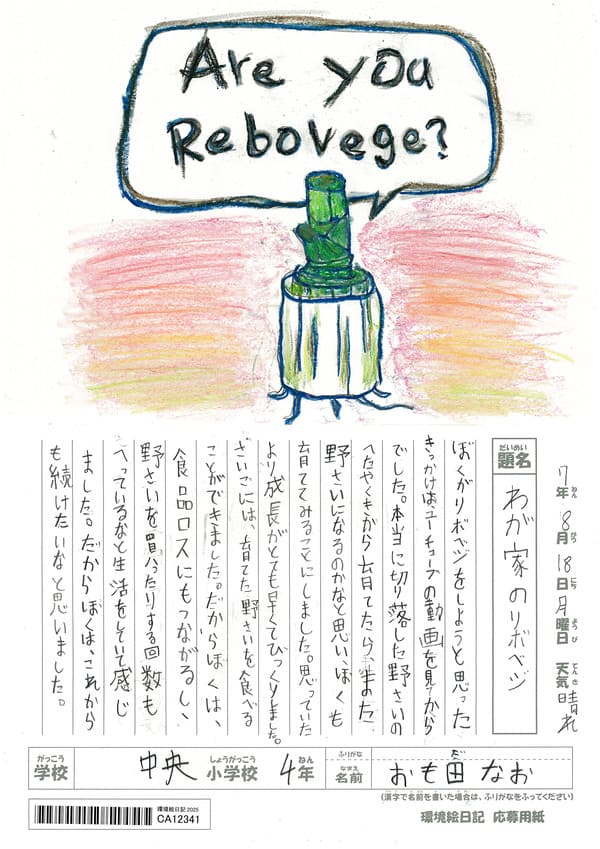 Are you
Rebovege?
7年 8月 18日 月曜日 天気 晴れ
ねん がつ にち よう び てんき
だいめい
題名
わが家のリボベジ
ぼくがリボベジをしようと思った
きっかけは、ユーチューブの動画を見てから
でした。本当に切り落した野さいの
へたやくきから育てたらまた
野さいになるのかなと思い、ぼくも
育ててみることにしました。思っていた
より成長がとても早くてびっくりしました。
さいごには、育てた野さいを食べる
ことができました。だからぼくは、
食品ロスにもつながるし、
野さいを買ったりする回数も
へっているなと生活をしていて感じ
ました。だからぼくは、これから
も続けたいなと思いました。
がっこう
学校
中央
しょうがっこう
小学校
4
ねん
年
ふりがな
だ
なまえ
名前
おも田 なお
(漢字で名前を書いた場合は、ふりがなをふってください)
環境絵日記 2025
CA12341
環境絵日記 応募用紙